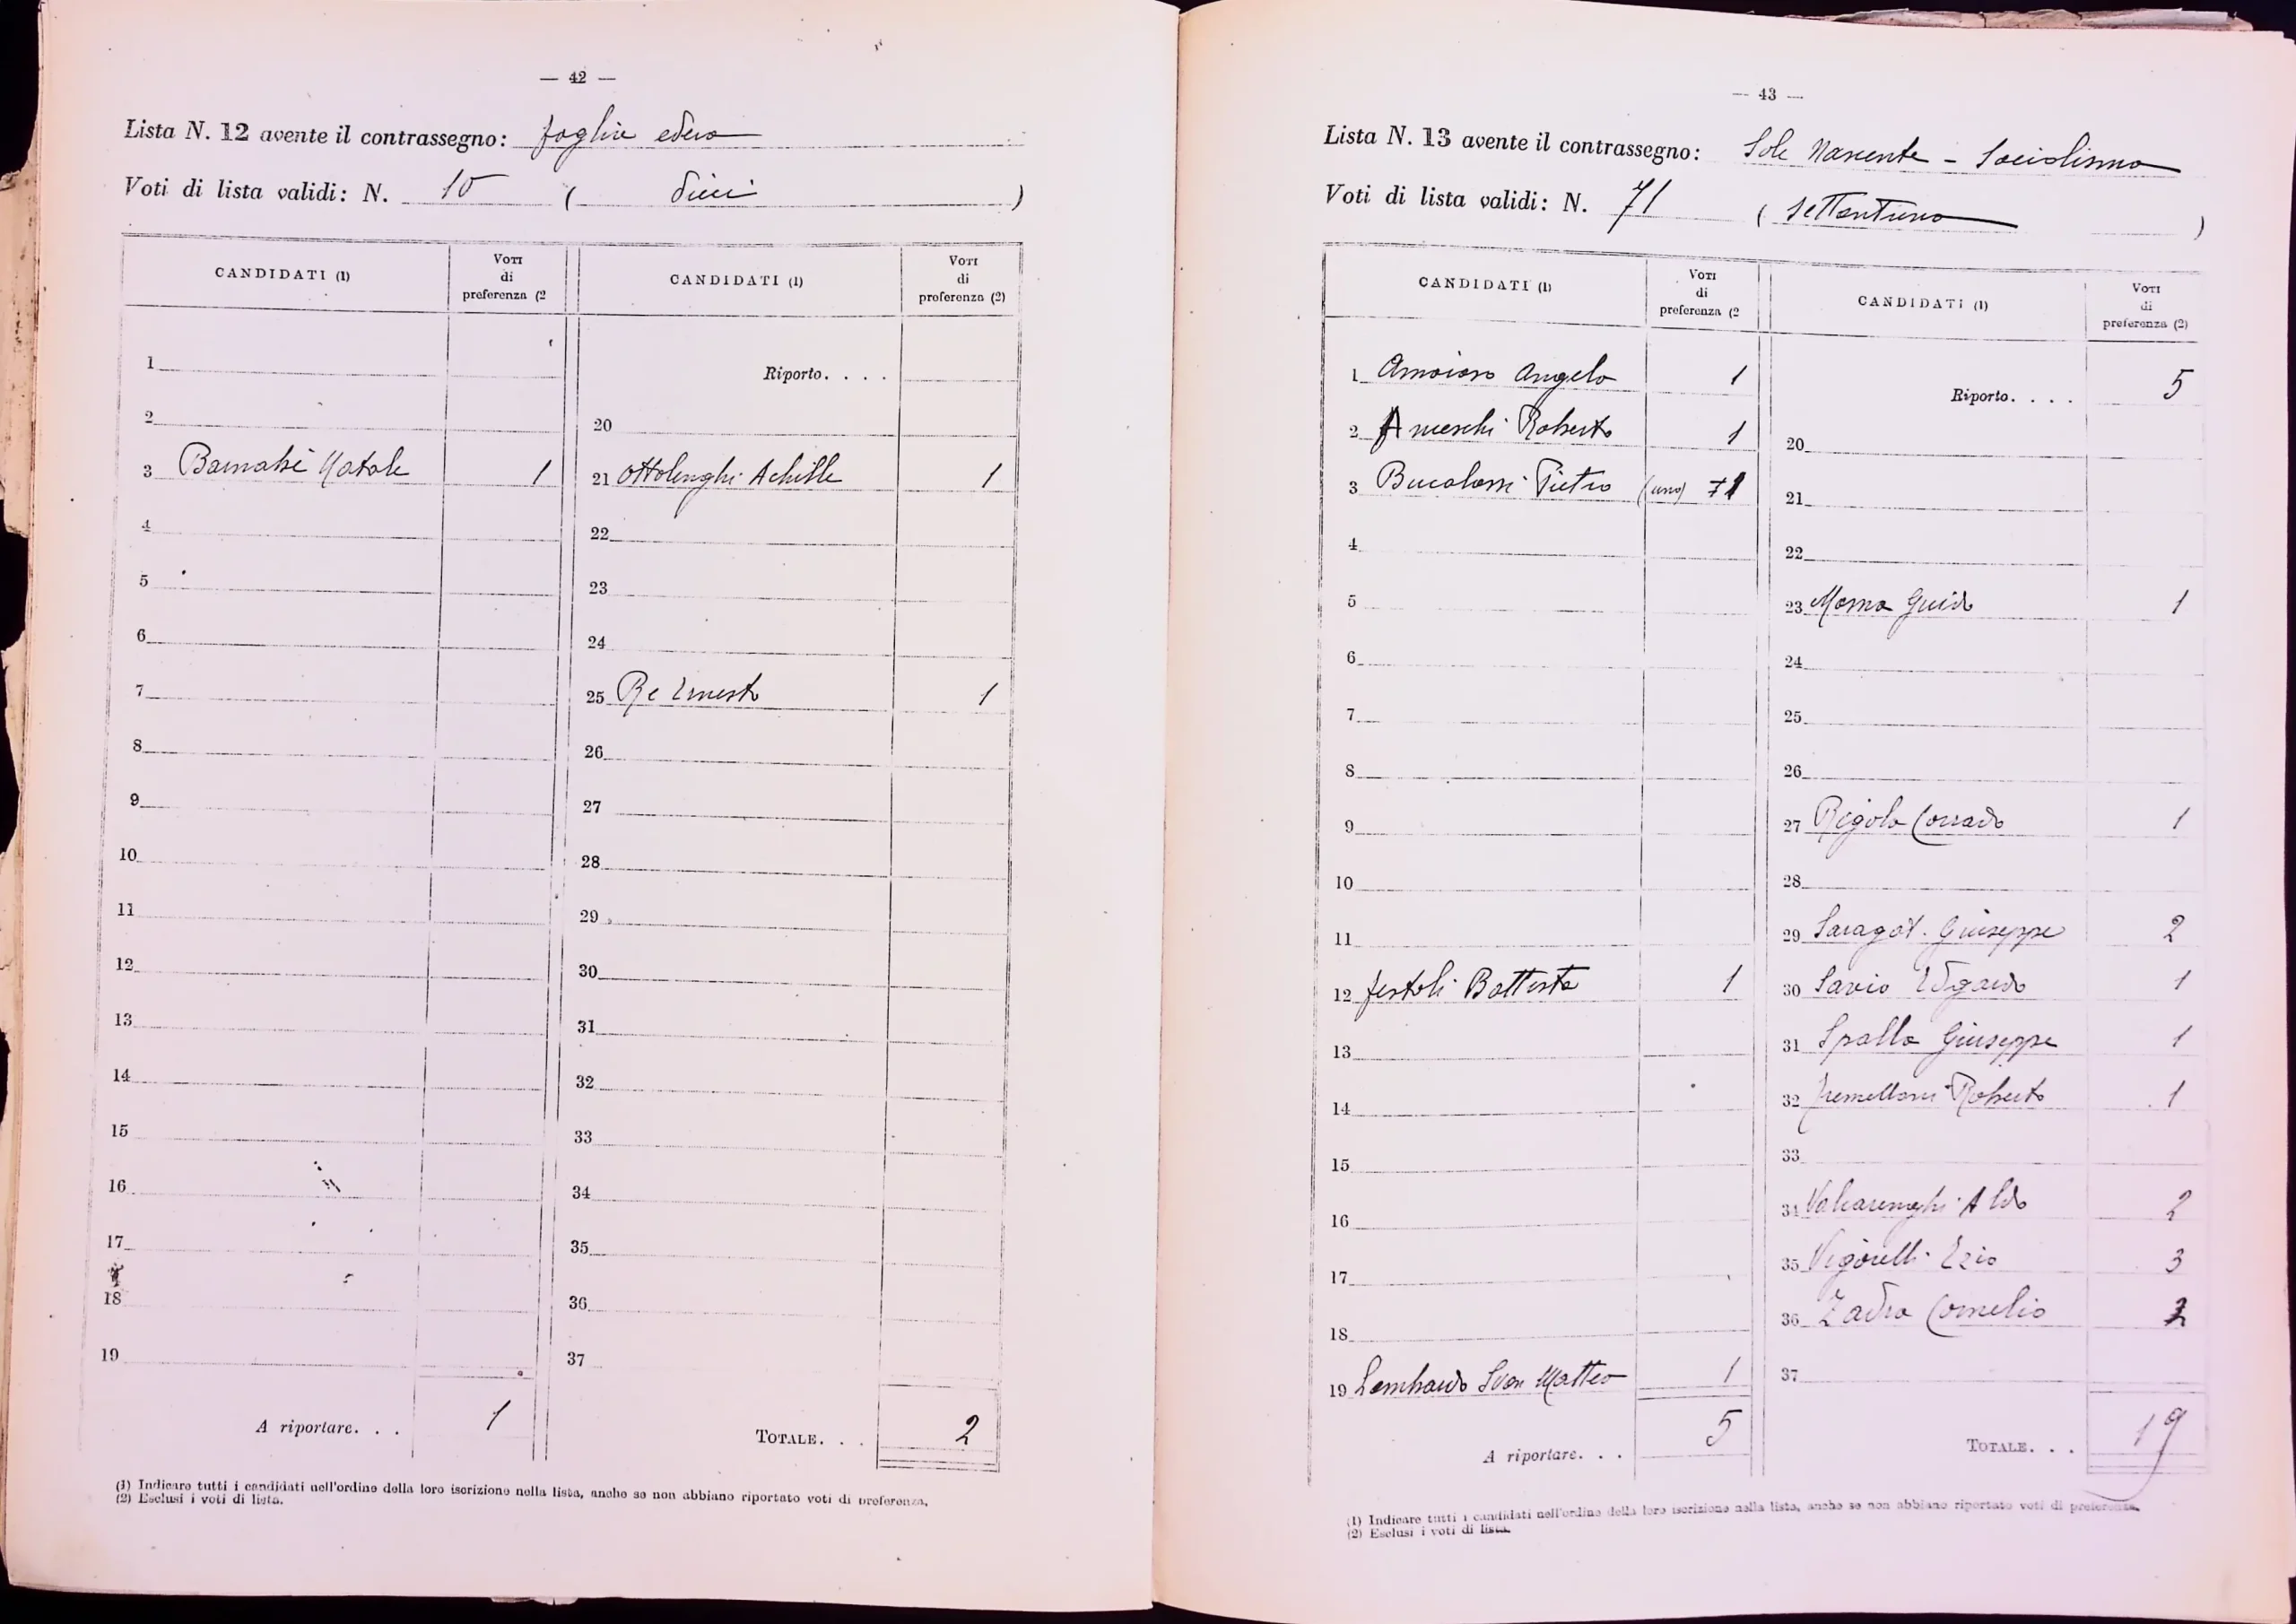 — 42 —
Lista N. 12 avente il contrassegno: foglia edera
Voti di lista validi: N. 10 ( dieci )
CANDIDATI (1) Voti di preferenza (2 CANDIDATI (1) Voti di preferenza (2)
1
2
3 Barnabè Natale 1
4
5
6
7
8
9
10
11
12
13
14
15
16
17
18
19
A riportare. . . 1
Riporto. . . .
20
21 Ottolenghi Achille 1
22
23
24
25 Re Ernesto 1
26
27
28
29
30
31
32
33
34
35
36
37
TOTALE. . . 2
(1) Indicare tutti i candidati nell'ordine della loro iscrizione nella lista, anche se non abbiano riportato voti di preferenza.
(2) Esclusi i voti di lista.
— 43 —
Lista N. 13 avente il contrassegno: Sole Nascente - Socialismo
Voti di lista validi: N. 71 ( settantuno )
CANDIDATI (1) Voti di preferenza (2 CANDIDATI (1) Voti di preferenza (2)
1 Angelo 1
2 Roberto 1
3 Bucalossi Pietro (uno) 1
4
5
6
7
8
9
10
11
12 Battista 1
13
14
15
16
17
18
19 Lombardo Ivan Matteo 1
A riportare. . . 5
Riporto. . . . 5
20
21
22
23 Guido 1
24
25
26
27 Rigola Corrado 1
28
29 Saragat Giuseppe 2
30 Savio Edgardo 1
31 Spalla Giuseppe 1
32 Tremelloni Roberto 1
33
34 Valcarenghi Aldo 2
35 Vigorelli Ezio 3
36 Zadra Cornelio 2
37
TOTALE. . . 19
(1) Indicare tutti i candidati nell'ordine della loro iscrizione nella lista, anche se non abbiano riportato voti di preferenza.
(2) Esclusi i voti di lista.